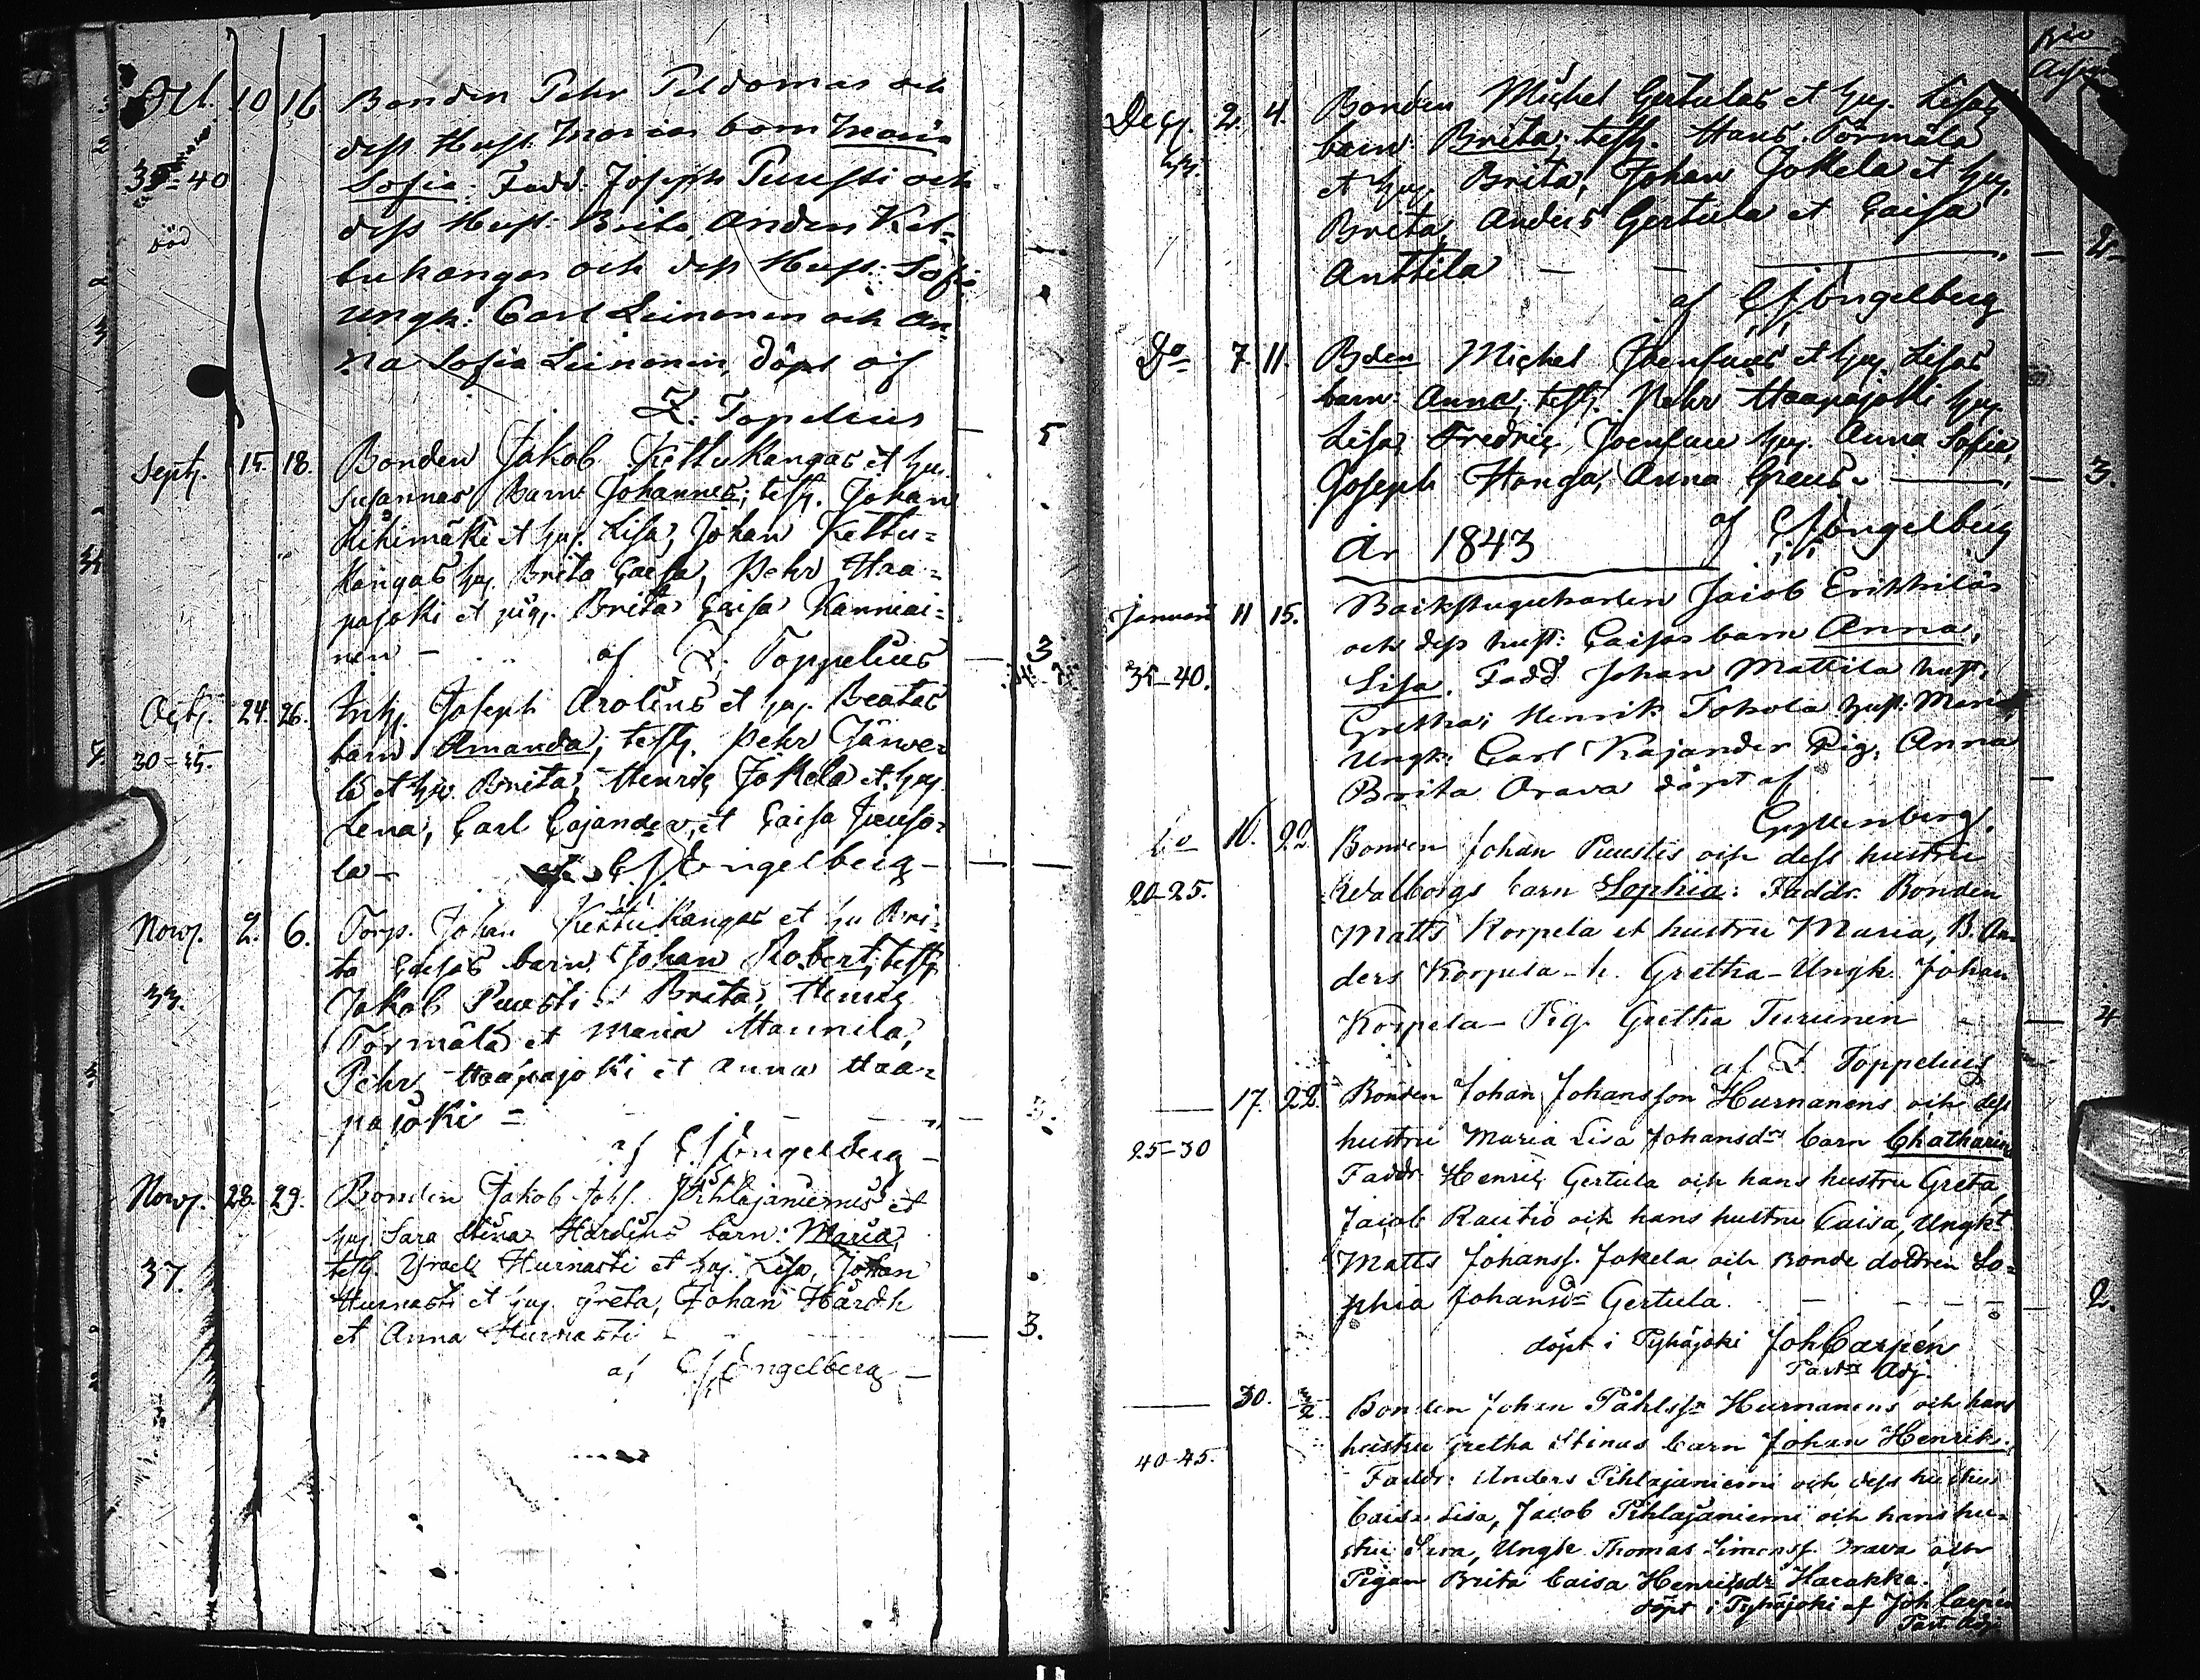 Oct. 10 16 Bonden Pehr Peldomas och
dess Hust. Marias barn Maria
35-40 Sofia: Fadd. Joseph Puusti och
död dess Hust. Brita, Anders Ket-
tukangas och dess Hust: Sofia
Ungk: Carl Leinonen och An-
na Sofia Leinonen, döpt af
Z. Topelius
5
Septj. 15. 18. Bonden Jakob Kettukangas et huj.
Susannas Barn Johannes; test. Johan
Rihimäki et huj. Lisa, Johan Kettu=
kangas huj. Brita Caisa, Pehr Haa=
pajoki et pig. Brita Caisa Kanniai=
nen - af Z. Toppelius
3
Octj. 24. 26. Joseph Arolins et huj. Beatas
30-35. barn Amanda; test. Pehr Järwe-
lä et huj. Brita, Henric Jokela et huj.
Lena, Carl Cajander, et Caisa Junso-
la - af Engelberg -
Novj. 2. 6. Torp. Johan Kettukangas et hu Bri-
ta Caisas barn Johan Robert; test.
33. Jakob Puusti Brita, Henric
Törmälä et Maria Maunila,
Pehr Haapajoki et Anna Haa-
pajoki =
3.
af Engelberg -
Novj. 28. 29. Bonden Jakob Joh. Pihlajaniemis et
huj. Sara Stina Hårdhs barn: Maria
37. test. Israel Hurnasti et huj. Lisa, Johan
Hurnasti et huj. Greta, Johan Hårdh
et Anna Hurnasti - 3.
af Engelberg -
Decj. 2. 4. Bonden Michel Gertulas et huj. Lisas
33. barn Brita; test. Hans Törmälä
et huj. Brita, Johan Jokela et huj.
Brita, Anders Gertula et Caisa
Anttila - - 2-
af Engelberg
Do 7. 11. Bden Michel Joensuus et huj. Lisas
barn: Anna; test. Pehr Haapajoki huj.
Lisa, Fredric Joensuu huj. Anna Sofia,
Joseph Honga, Anna Greus - 3.
af Engelberg
År 1843
Januari 11 15. Backstugukarlen Jacob Erikkiläs
och dess hust: Caisas barn Anna
35-40. Lisa. Fadd Johan Mattila hust.
Gretha; Henrik Tokola hust: Maria
Ungk: Carl Kajander Pig. Anna
Brita Orava döpt af
Gyllenberg.
Do 16. 22 Bonden Johan Puustis och dess hustru
20-25. Walborgs barn Sophia: Faddr. Bonden
Matts Korpela et hustru Maria, B. An-
ders Korpela - h. Gretha - Ungk. Johan
Korpela - Pig. Gretha Turunen - 4
af Z Toppelius
17. 22. Bonden Johan Johansson Hurnanens och dess
25-30 hustru Maria Lisa Johansdr barn Chatharina
Faddr. Henric Gertula och hans hustru Greta,
Jacob Rautio och hans hustru Caisa, Ungk
Matts Johanss. Jokela och Bonde dottren So-
phia Johansdr Gertula. - - - 2.
döpt i Pyhäjoki Joh Carpén
Past. Adj.
30. 3/2 Bonden Johan Påhlssn Hurnanens och hans
40-45. hustru Gretha Stinas barn Johan Henrik.
Faddr: Anders Pihlajaniemi och dess hustru
Caisa Lisa, Jacob Pihlajaniemi och hans hu-
stru Sara, Ungk. Thomas Simonss. Orava och
Pigan Brita Caisa Henricsdr Harakka.
döpt i Pyhäjoki af Joh Carpén
Past. Adj.